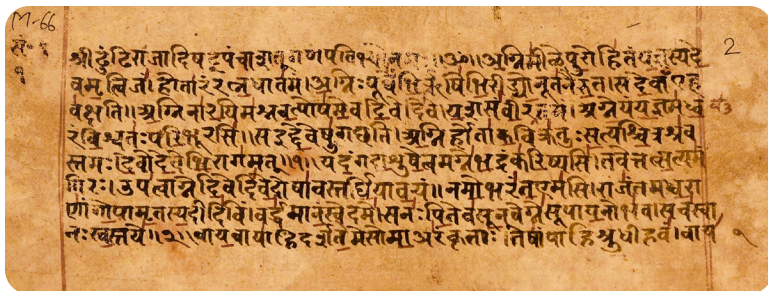 M-66
2
॥ॐ॥अग्निमीळेपुरोहितंयज्ञस्यदे
वमृत्विजं।होतारंरत्नधातमं।अग्निःपूर्वेभिर्ऋषिभिरीड्योनूतनैरुत।सदेवाँएह
वक्षति॥अग्निनारयिमश्नवत्पोषमेवदिवेदिवे।यशसंवीरवत्तमं।अग्नेयंयज्ञमध्व
रंविश्वतःपरिभूरसि॥सइद्देवेषुगच्छति।अग्निर्होताकविक्रतुःसत्यश्चित्रश्रव
स्तमः।देवोदेवेभिरागमत्॥१॥यदंगदाशुषेत्वमग्नेभद्रंकरिष्यसि।तवेत्तत्सत्यमं
गिरः।उपत्वाग्नेदिवेदिवेदोषावस्तर्धियावयं॥नमोभरंतएमसि।राजंतमध्वरा
णांगोपामृतस्यदीदिविं।वर्द्धमानंस्वेदमे।सनःपितेवसूनवेग्नेसूपायनोभव।सचस्वा
नःस्वस्तये॥२॥वायवायाहिदर्शतेमेसोमाअरंकृताः।तेषांपाहिश्रुधीहवं।वाय